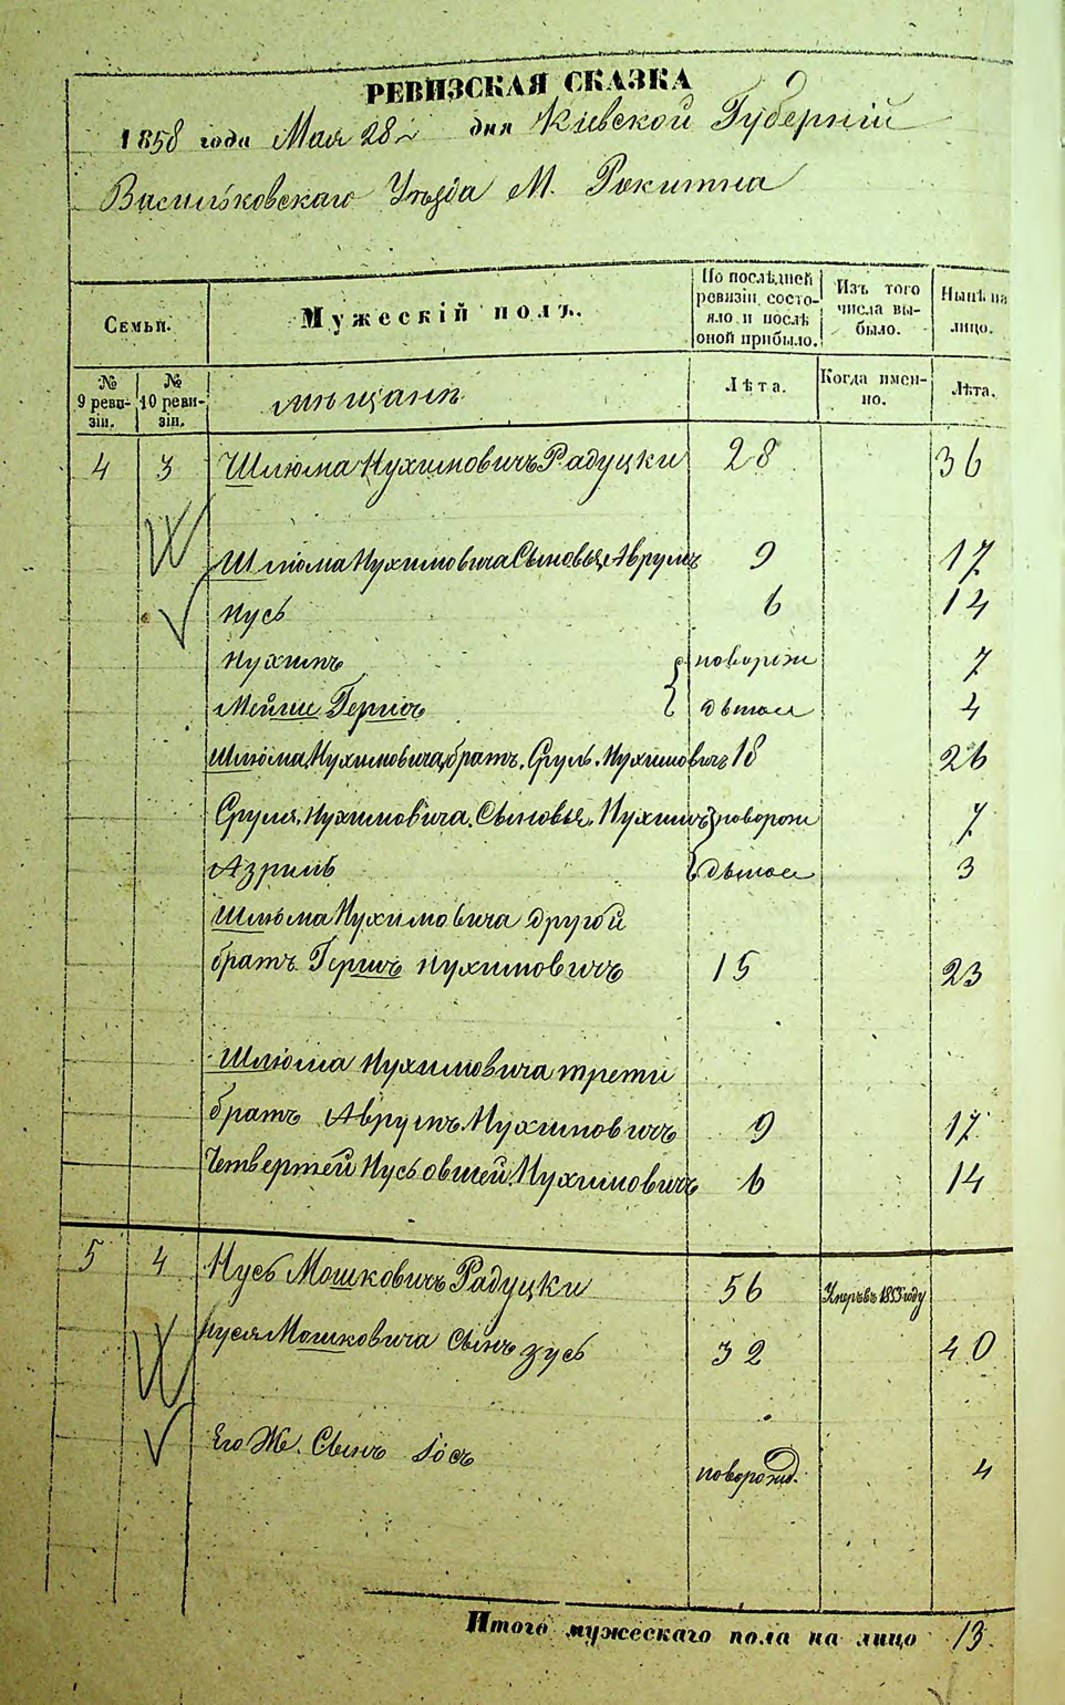 РЕВИЗСКАЯ СКАЗКА
1858 года Мая 28 дня Кіевской Губерній
Васильковскаго Уѣзда М. Рокитна
Семьи.
Мужескій полъ.
По послѣдней ревизіи состояло и послѣ оной прибыло.
Изъ того числа выбыло.
Нынѣ на лицо.
№ 9 ревизіи.
№ 10 ревизіи.
мѣщане
Лѣта.
Когда именно.
Лѣта.
4 3 Шлюма Нухимовичъ Радуцки 28 36
Шлюма Нухимовича Сыновья Аврумъ 9 17
Нусь 6 14
Нухимъ новорож 7
Мейлих Гершъ дѣтаеи 4
Шлюма Нухимовича братъ Сруль Нухимовичъ 18 26
Сруля Нухимовича Сыновья Нухимъ новорож 7
Азриль дѣтаеи 3
Шлюма Нухимовича другой
братъ Гершъ Нухимовичъ 15 23
Шлюма Нухимовича трети
братъ Аврумъ Нухимовичъ 9 17
Четвертей Нусь овшей Нухимовичъ 6 14
5 4 Нусь Мошковичъ Радуцки 56 Умеръ въ 1853 году
Нуся Мошковича Сынъ Зусь 32 40
Его Же Сынъ Іосъ новорожд. 4
Итого мужескаго пола на лицо 13.